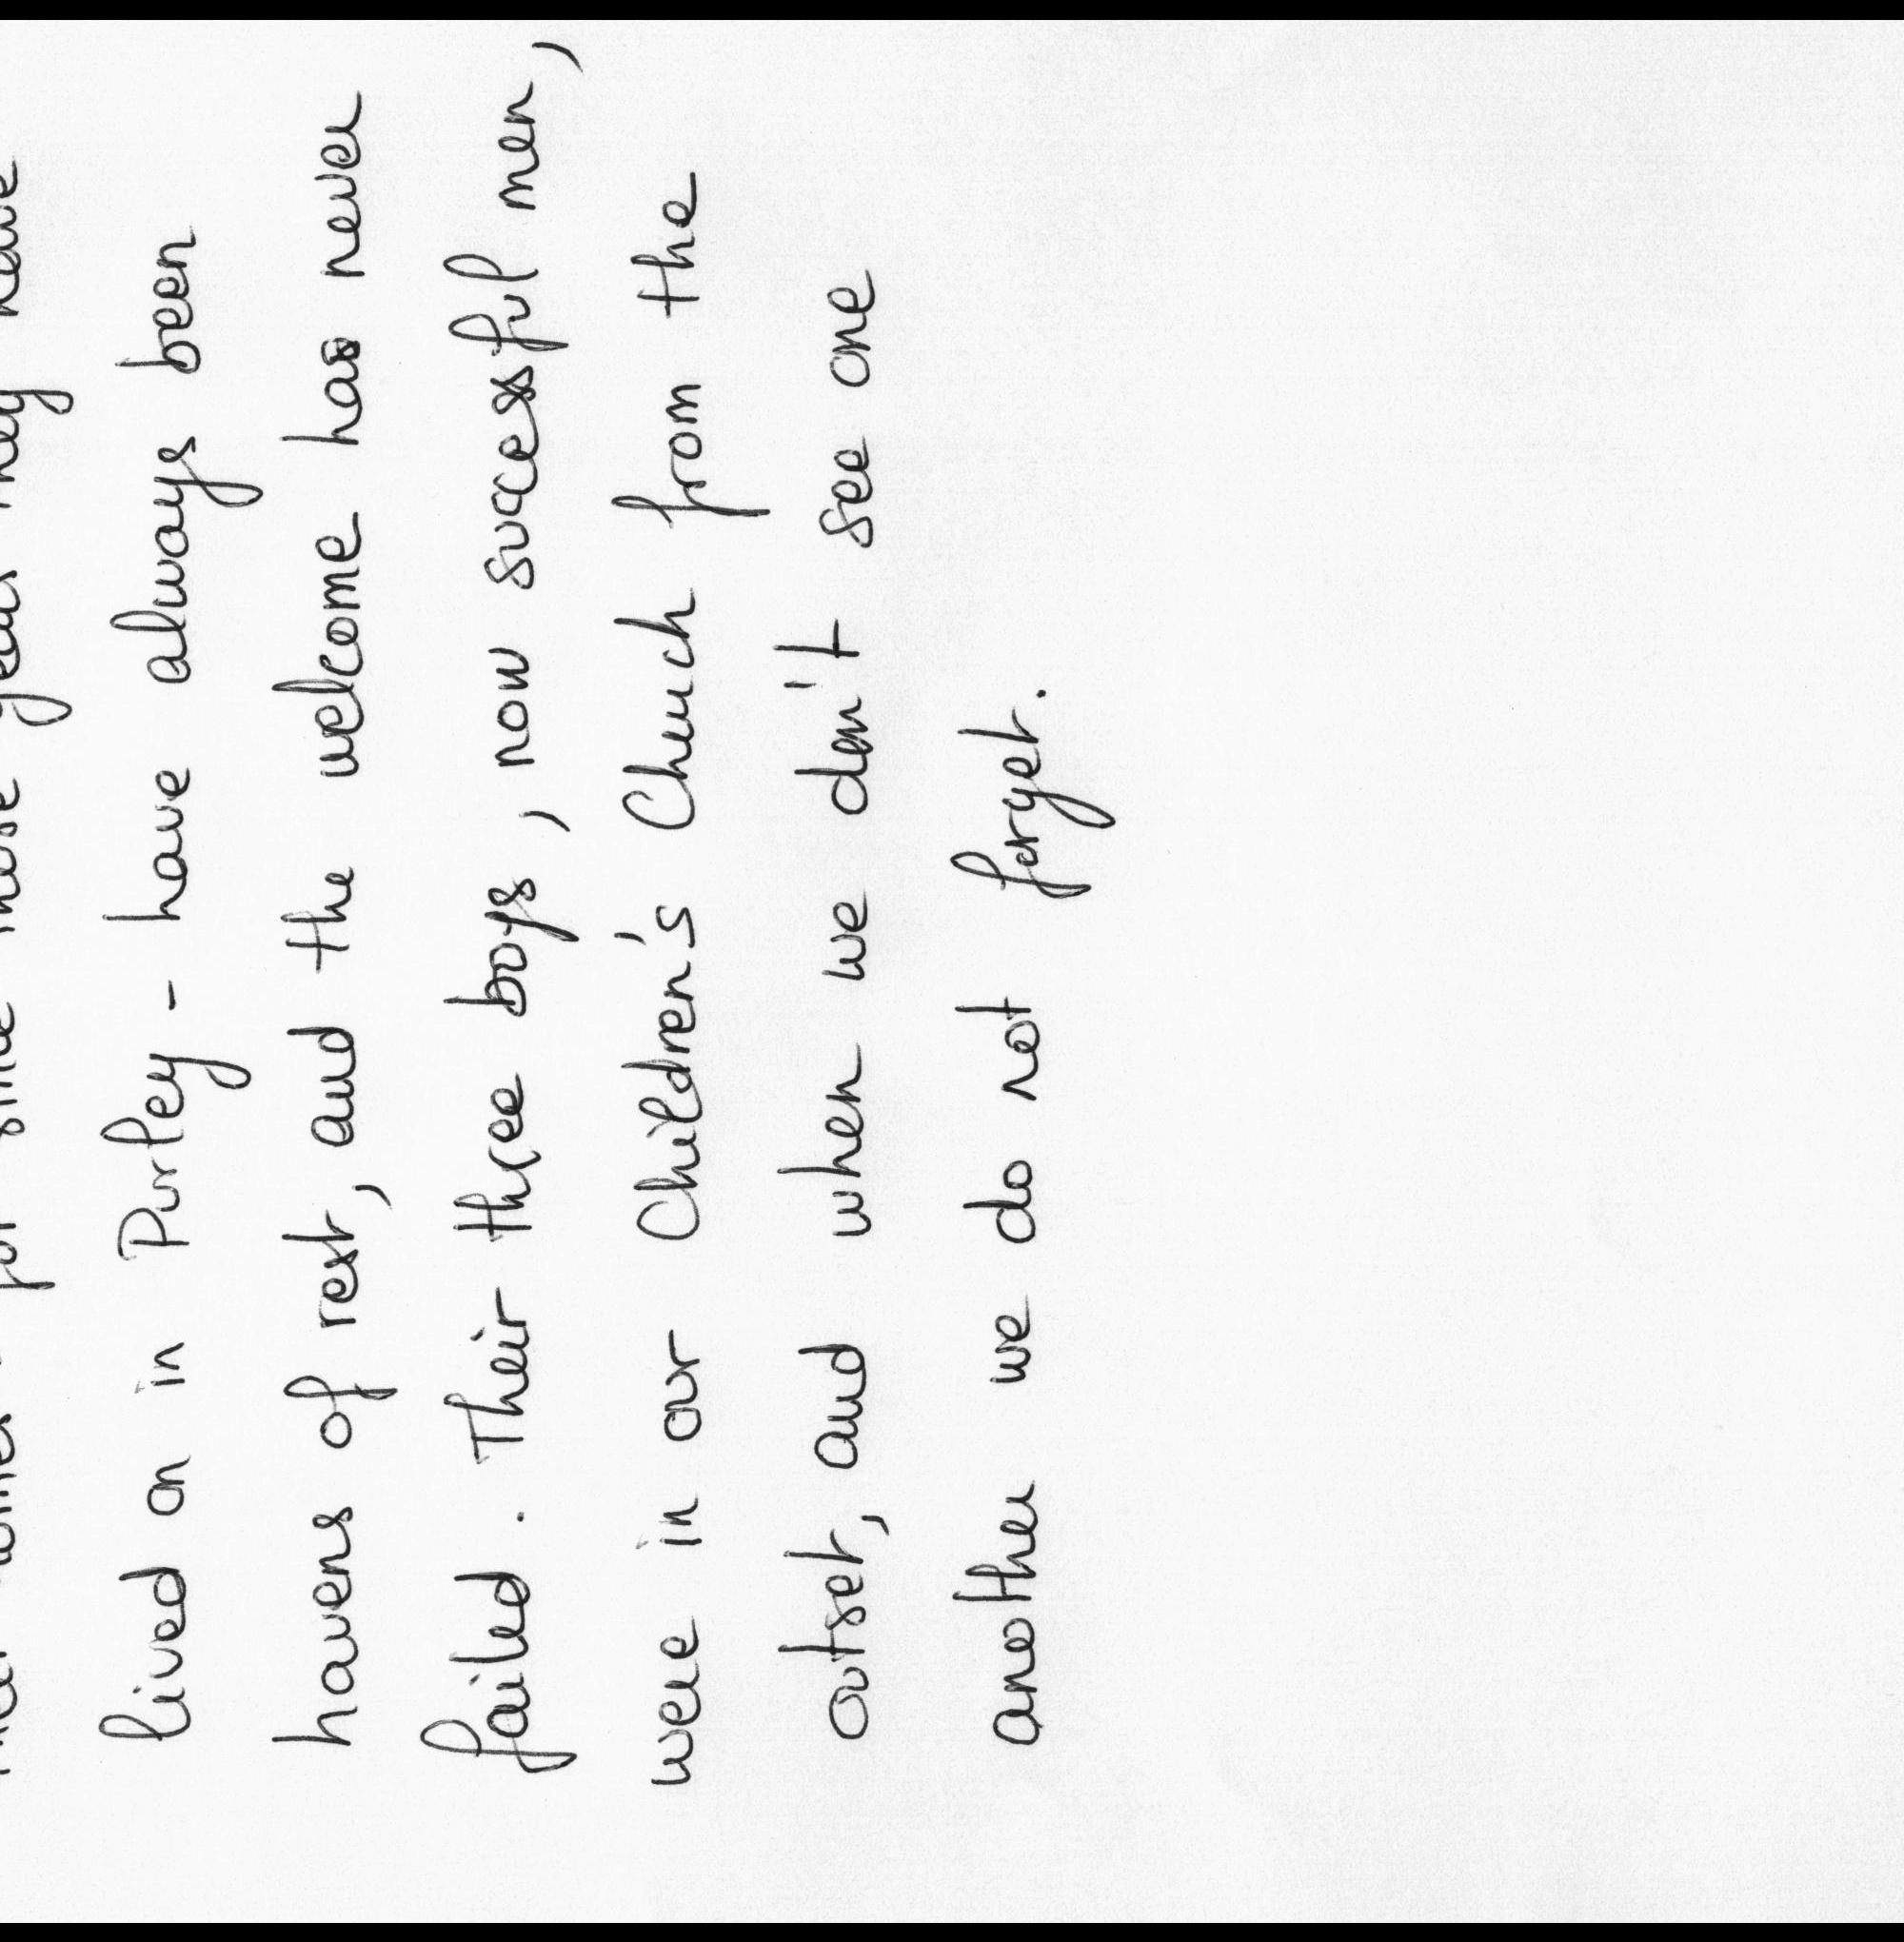 for since those years they have
lived on in Purley - have always been
havens of rest, and the welcome has never
failed. Their three boys, now successful men,
were in our Children's Church from the
outset, and when we don't see one
another we do not forget.